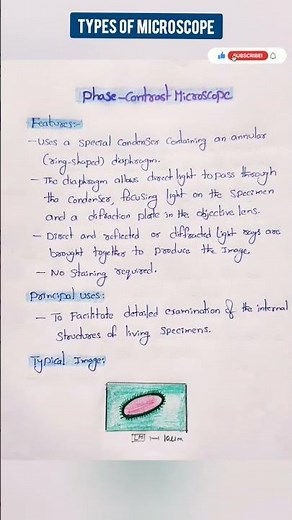 TYPES OF MICROSCOPE
SUBSCRIBE
Phase-Contrast Microscope
Features:-
- Uses a special condenser containing an annular
(ring-shaped) diaphragm.
- The diaphragm allows direct light to pass through
the condenser, focusing light on the specimen
and a diffraction plate in the objective lens.
- Direct and reflected or diffracted light rays are
brought together to produce the image.
- No Staining required.
Principal Uses:
- To Facilitate detailed examination of the internal
Structures of living specimens.
Typical Image:
LM